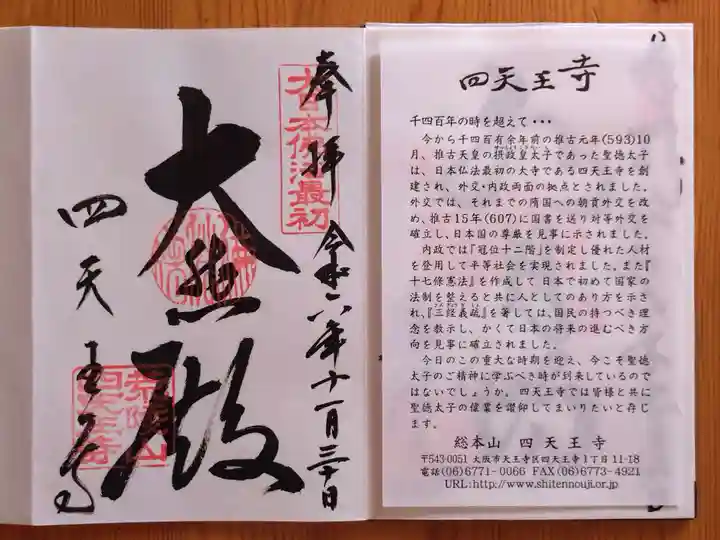 奉拝 令和六年十一月三十日
大日本佛法最初
大悲殿
四天王寺
荒陵山
四天王寺
四天王寺
千四百年の時を超えて・・・
今から千四百有余年前の推古元年(593)10
月、推古天皇の摂政皇太子であった聖徳太子
は、日本仏法最初の大寺である四天王寺を創
建され、外交・内政両面の拠点とされました。
外交では、それまでの隋国への朝貢外交を改
め、推古15年(607)に国書を送り対等外交を
確立し、日本国の尊厳を見事に示されました。
内政では「冠位十二階」を制定し優れた人材
を登用して平等社会を実現されました。また『
十七條憲法』を作成して日本で初めて国家の
法制を整えると共に人としてのあり方を示さ
れ、『三経義疏』を著しては、国民の持つべき理
念を教示し、かくて日本の将来の進むべき方
向を見事に確立されました。
今日のこの重大な時期を迎え、今こそ聖徳
太子のご精神に学ぶべき時が到来しているので
はないでしょうか。四天王寺では皆様と共に
聖徳太子の偉業を讃仰してまいりたいと存じ
ます。
総本山 四天王寺
〒543-0051 大阪市天王寺区四天王寺1丁目11-18
電話(06)6771-0066 FAX(06)6773-4921
URL:http://www.shitennouji.or.jp